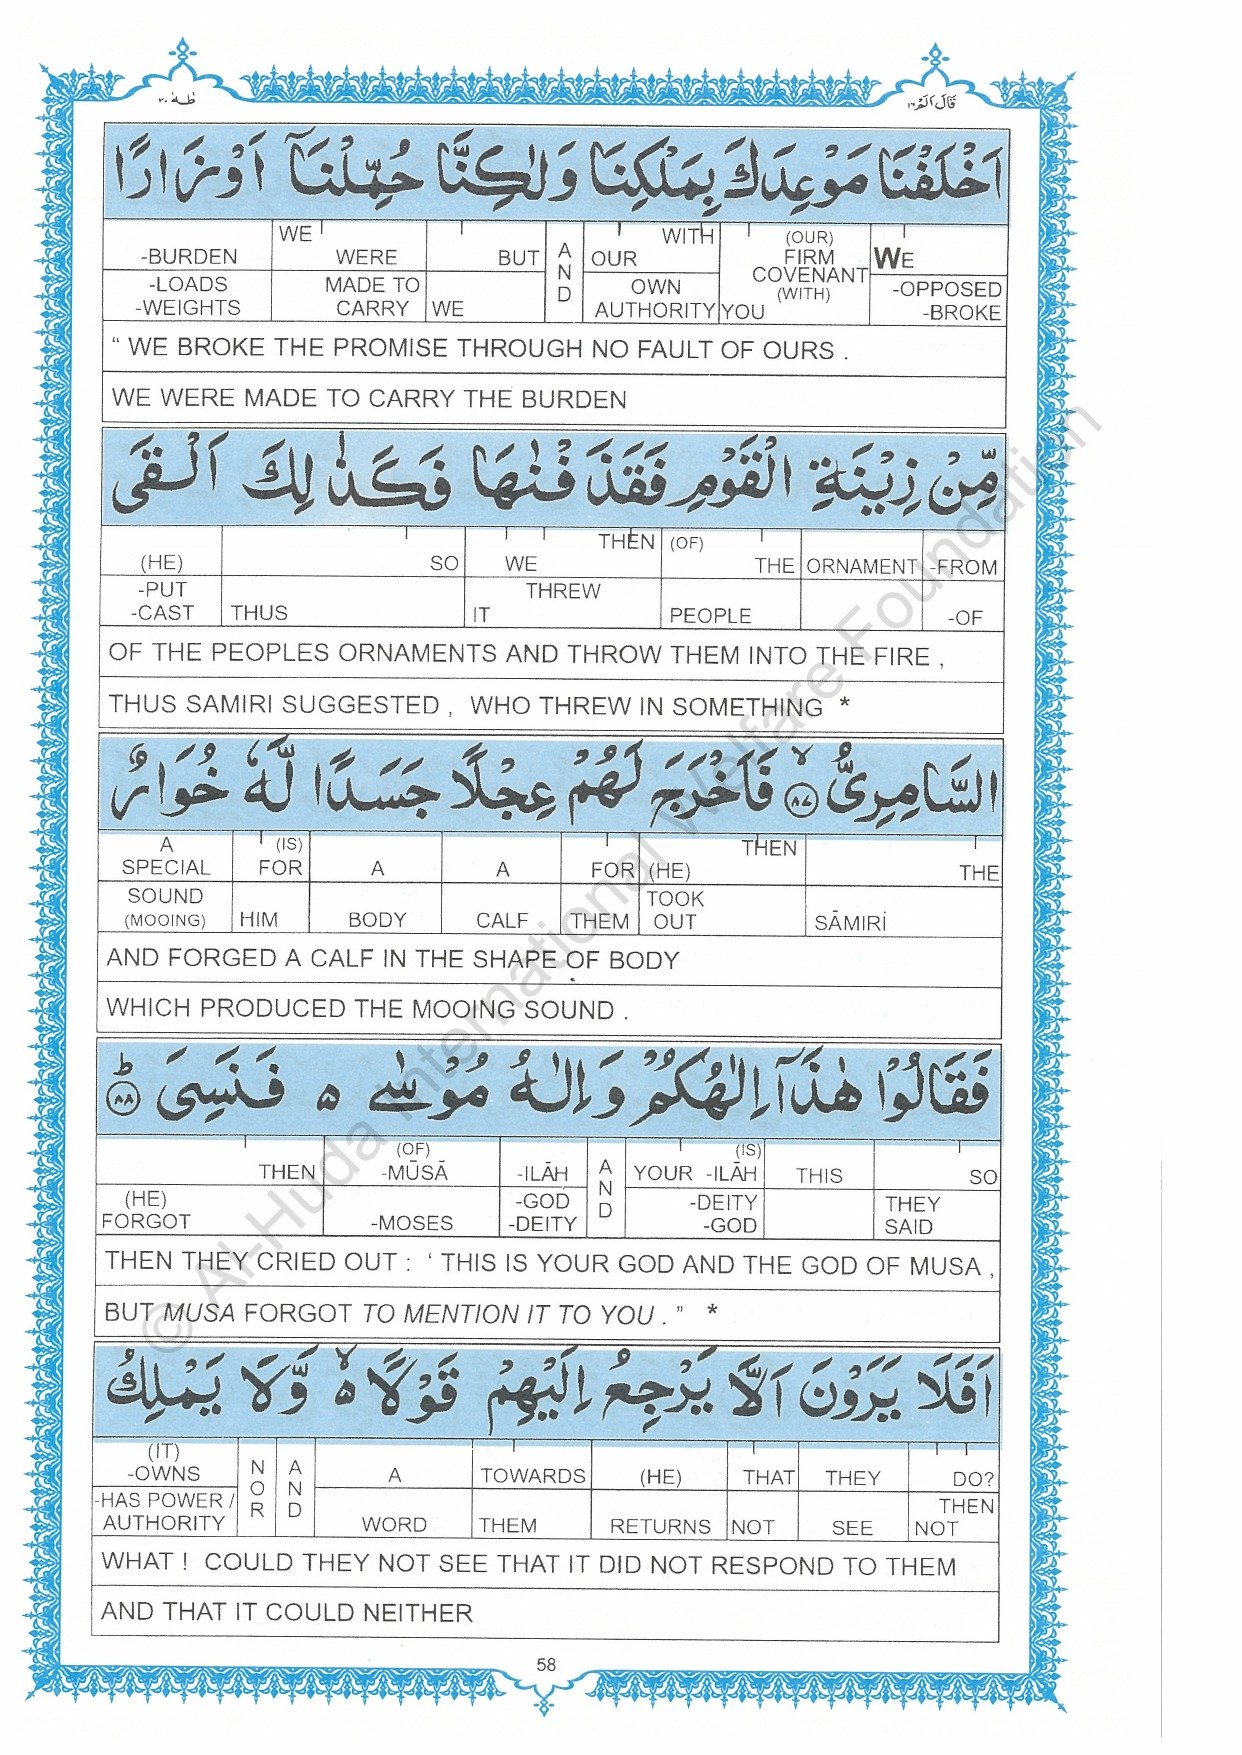 طٰهٰ ٢٠
قَالَ اَلَم ١٦
اَخْلَفْنَا مَوْعِدَكَ بِمَلْكِنَا وَلٰكِنَّا حُمِّلْنَآ اَوْزَارًا
-BURDEN WE WERE BUT AND WITH OUR (OUR) FIRM COVENANT (WITH) WE
-LOADS -WEIGHTS MADE TO CARRY WE OWN AUTHORITY YOU -OPPOSED -BROKE
“ WE BROKE THE PROMISE THROUGH NO FAULT OF OURS .
WE WERE MADE TO CARRY THE BURDEN
مِّنْ زِيْنَةِ الْقَوْمِ فَقَذَفْنٰهَا فَكَذٰلِكَ اَلْقَى
(HE) SO WE THEN (OF) THE ORNAMENT -FROM
-PUT -CAST THUS THREW IT PEOPLE -OF
OF THE PEOPLES ORNAMENTS AND THROW THEM INTO THE FIRE ,
THUS SAMIRI SUGGESTED , WHO THREW IN SOMETHING *
السَّامِرِىُّ ٨٧ فَاَخْرَجَ لَهُمْ عِجْلًا جَسَدًا لَّهٗ خُوَارٌ
A SPECIAL (IS) FOR A A FOR (HE) THEN THE
SOUND (MOOING) HIM BODY CALF THEM TOOK OUT SĀMIRİ
AND FORGED A CALF IN THE SHAPE OF BODY
WHICH PRODUCED THE MOOING SOUND .
فَقَالُوْا هٰذَآ اِلٰهُكُمْ وَاِلٰهُ مُوْسٰى ە فَنَسِىَ ٨٨ ط
THEN (OF) -MŪSĀ -ILĀH AND YOUR (IS) -ILĀH THIS SO
(HE) FORGOT -MOSES -GOD -DEITY -DEITY -GOD THEY SAID
THEN THEY CRIED OUT : ‘ THIS IS YOUR GOD AND THE GOD OF MUSA ,
BUT MUSA FORGOT TO MENTION IT TO YOU . ” *
اَفَلَا يَرَوْنَ اَلَّا يَرْجِعُ اِلَيْهِمْ قَوْلًا ە وَّلَا يَمْلِكُ
(IT) -OWNS NOR AND A TOWARDS (HE) THAT THEY DO?
-HAS POWER / AUTHORITY WORD THEM RETURNS NOT SEE THEN NOT
WHAT ! COULD THEY NOT SEE THAT IT DID NOT RESPOND TO THEM
AND THAT IT COULD NEITHER
58
© Al-Huda International Welfare Foundation